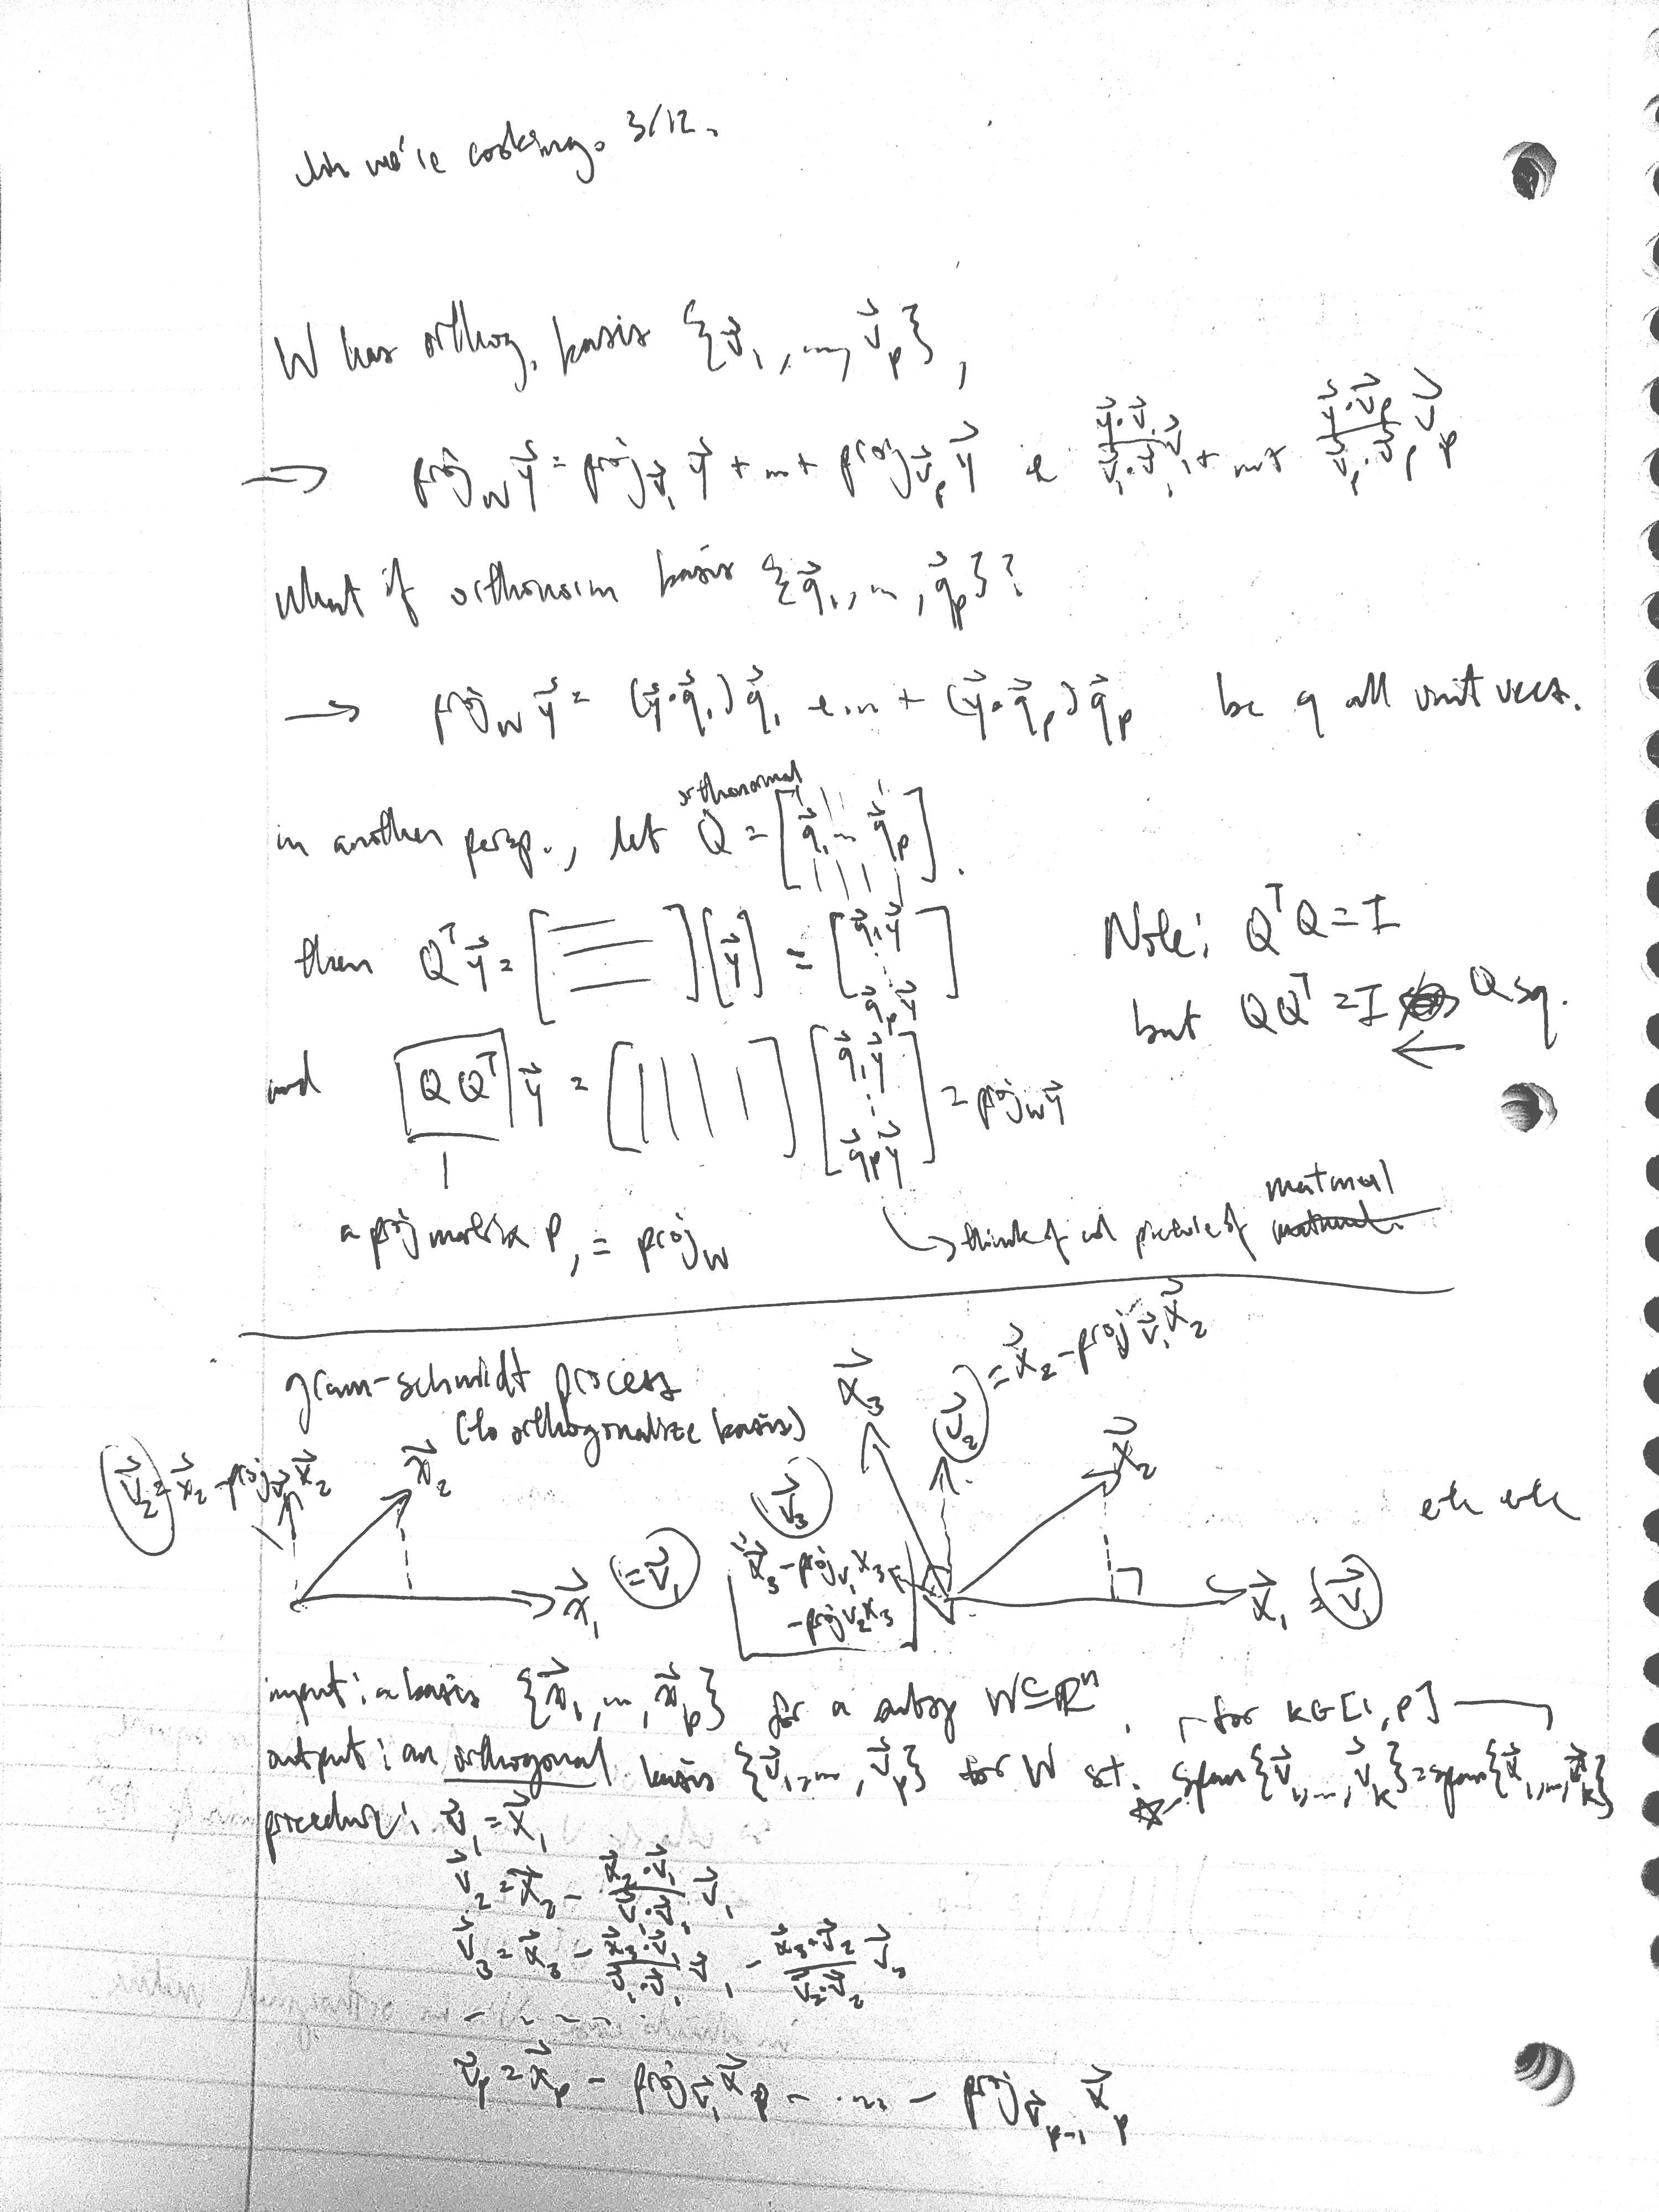 we're cooking. 3/12.
W has orthog. basis {v⃗₁, ..., v⃗ₚ},
→ proj_W y⃗ = proj_v⃗₁ y⃗ + ... + proj_v⃗ₚ y⃗ = (y⃗·v⃗₁)/(v⃗₁·v⃗₁) v⃗₁ + ... + (y⃗·v⃗ₚ)/(v⃗ₚ·v⃗ₚ) v⃗ₚ
What if orthonorm basis {q⃗₁, ..., q⃗ₚ}?
→ proj_W y⃗ = (y⃗·q⃗₁) q⃗₁ + ... + (y⃗·q⃗ₚ) q⃗ₚ bc q all unit vecs.
orthonormal
in another persp., let Q = [q⃗₁ ... q⃗ₚ].
then Qᵀy⃗ = [ ][y⃗] = [q⃗₁·y⃗ ⋮ q⃗ₚ·y⃗]
Note: QᵀQ = I
but QQᵀ = I ← Q sq.
and QQᵀ y⃗ = [ ][q⃗₁·y⃗ ⋮ q⃗ₚ·y⃗] = proj_W y⃗
a proj matrix P, = proj_W
↳ think of col picture of matmul
gram-schmidt process
(to orthogonalize basis)
v⃗₂ = x⃗₂ - proj_v⃗₁ x⃗₂
x⃗₂
x⃗₁ (= v⃗₁)
x⃗₃
v⃗₂ = x⃗₂ - proj_v⃗₁ x⃗₂
x⃗₂
v⃗₃
= x⃗₃ - proj_v₁ x₃
- proj_v₂ x₃
x⃗₁ = v⃗₁
etc etc
input: a basis {x⃗₁, ..., x⃗ₚ} for a subsp W ⊆ ℝⁿ.
for k ∈ [1, p]
output: an orthogonal basis {v⃗₁, ..., v⃗ₚ} for W st. ☆ span{v⃗₁, ..., v⃗ₖ} = span{x⃗₁, ..., x⃗ₖ}
procedure: v⃗₁ = x⃗₁
v⃗₂ = x⃗₂ - (x⃗₂·v⃗₁)/(v⃗₁·v⃗₁) v⃗₁
v⃗₃ = x⃗₃ - (x⃗₃·v⃗₁)/(v⃗₁·v⃗₁) v⃗₁ - (x⃗₃·v⃗₂)/(v⃗₂·v⃗₂) v⃗₂
- - - -
v⃗ₚ = x⃗ₚ - proj_v⃗₁ x⃗ₚ - ... - proj_v⃗ₚ₋₁ x⃗ₚ